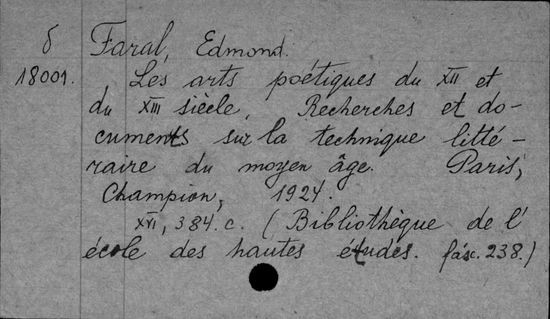 б Faral, Edmond.
18001. Les arts poétiques du XII et
du XIII siècle. Recherches et do-
cuments sur la technique litté-
raire du moyen âge. Paris,
Champion, 1924.
XVI, 384. c. (Bibliothèque de l'
école des hautes études. fasc. 238.)